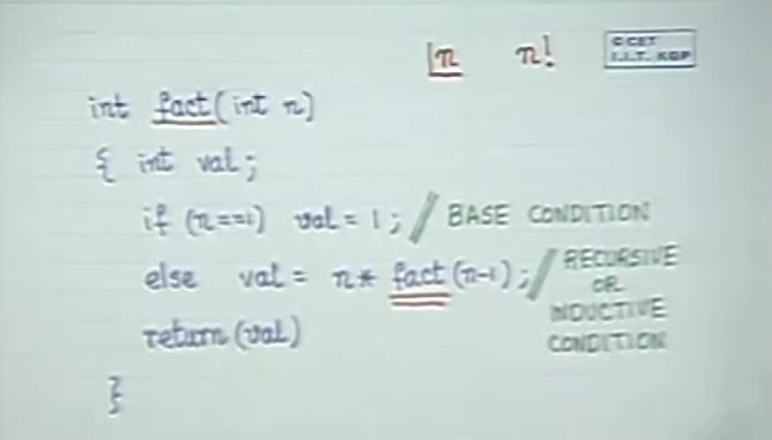 |n n!
© CET
I.I.T. KGP
int fact(int n)
{ int val;
if (n==1) val = 1; // BASE CONDITION
else val = n * fact(n-1); // RECURSIVE
OR
INDUCTIVE
CONDITION
return(val)
}